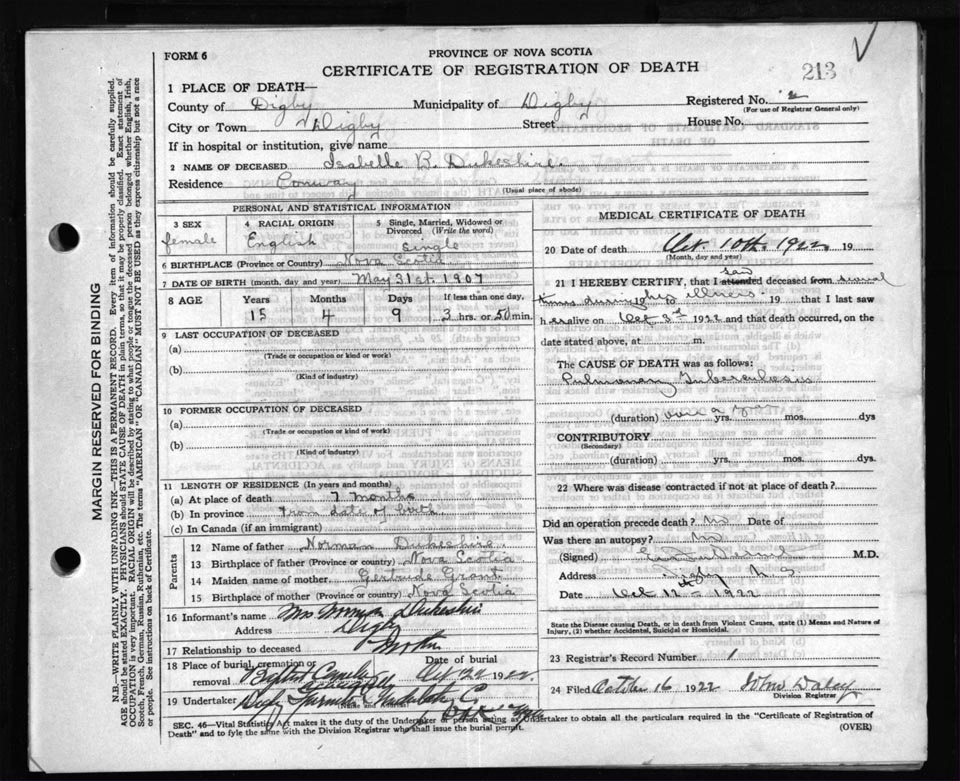 FORM 6
PROVINCE OF NOVA SCOTIA
CERTIFICATE OF REGISTRATION OF DEATH
213
1 PLACE OF DEATH—
County of Digby Municipality of Digby Registered No. 2
(For use of Registrar General only)
City or Town Digby Street House No.
If in hospital or institution, give name
2 NAME OF DECEASED Isabelle B. Dukeshire
Residence Conway
(Usual place of abode)
PERSONAL AND STATISTICAL INFORMATION
3 SEX female
4 RACIAL ORIGIN English
5 Single, Married, Widowed or Divorced (Write the word) Single
6 BIRTHPLACE (Province or Country) Nova Scotia
7 DATE OF BIRTH (month, day, and year) May 31st. 1907
8 AGE Years Months Days If less than one day.
15 4 9 3 hrs. or 50 min.
9 LAST OCCUPATION OF DECEASED
(a)
(Trade or occupation or kind of work)
(b)
(Kind of industry)
10 FORMER OCCUPATION OF DECEASED
(a)
(Trade or occupation or kind of work)
(b)
(Kind of industry)
11 LENGTH OF RESIDENCE (In years and months)
(a) At place of death 7 months
(b) In province from date of birth
(c) In Canada (if an immigrant)
Parents
12 Name of father Norman Dukeshire
13 Birthplace of father (Province or country) Nova Scotia
14 Maiden name of mother Gertrude Grant
15 Birthplace of mother (Province or country) Nova Scotia
16 Informant's name Mrs Norman Dukeshire
Address Digby
17 Relationship to deceased Mother
18 Place of burial, cremation or removal
Date of burial
19 Undertaker
MEDICAL CERTIFICATE OF DEATH
20 Date of death Oct. 10th. 1922 19
(Month, day and year)
21 I HEREBY CERTIFY, that I attended saw deceased from several
times during her illness 19 that I last saw
h er alive on Oct 3rd 1922 and that death occurred, on the
date stated above, at m.
The CAUSE OF DEATH was as follows:
Pulmonary Tuberculosis
(duration) over 2 yrs. mos. dys
CONTRIBUTORY
(Secondary)
(duration) yrs. mos. dys
22 Where was disease contracted if not at place of death?
Did an operation precede death? No Date of
Was there an autopsy? No
(Signed) M.D.
Address Digby N.S
Date Oct 12th 1922
State the Disease causing Death, or in death from Violent Causes, state (1) Means and Nature of
Injury, (2) whether Accidental, Suicidal or Homicidal.
23 Registrar's Record Number 1
24 Filed October 16 1922 John Daley
Division Registrar
SEC. 46—Vital Statistics Act makes it the duty of the Undertaker or person acting as Undertaker to obtain all the particulars required in the "Certificate of Registration of
Death" and to fyle the same with the Division Registrar who shall issue the burial permit.
(OVER)
MARGIN RESERVED FOR BINDING
N.B.—WRITE PLAINLY WITH UNFADING INK—THIS IS A PERMANENT RECORD. Every item of information should be carefully supplied.
AGE should be stated EXACTLY. PHYSICIANS should STATE CAUSE OF DEATH in plain terms, so that it may be properly classified. Exact statement of
OCCUPATION is very important. RACIAL ORIGIN will be described by stating to what people or tongue the deceased person belonged whether English, Irish,
Scotch, French, German, Russian, Ruthenian, etc. The terms "AMERICAN" OR "CANADIAN" MUST NOT BE USED as they express citizenship but not a race
or people. See instructions on back of Certificate.